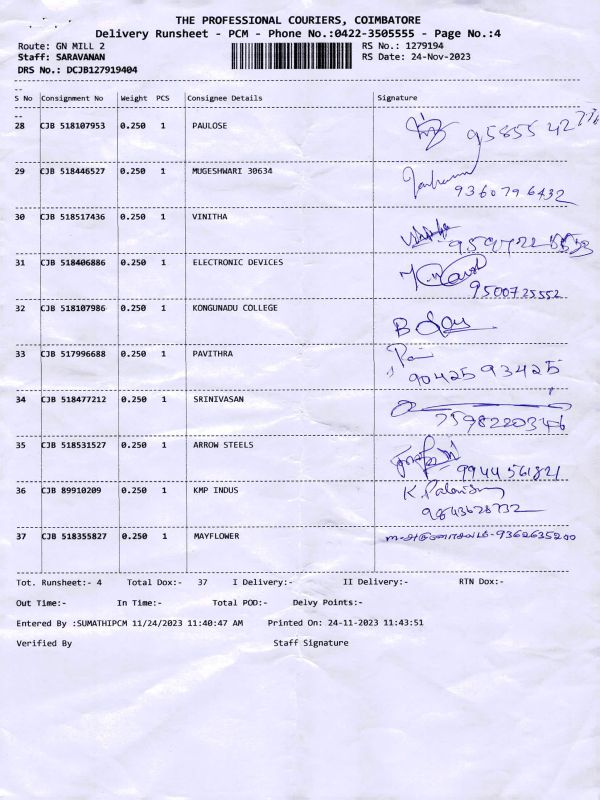 THE PROFESSIONAL COURIERS, COIMBATORE
Delivery Runsheet - PCM - Phone No.:0422-3505555 - Page No.:4
Route: GN MILL 2 RS No.: 1279194
Staff: SARAVANAN RS Date: 24-Nov-2023
DRS No.: DCJB127919404
S No Consignment No Weight PCS Consignee Details Signature
28 CJB 518107953 0.250 1 PAULOSE
29 CJB 518446527 0.250 1 MUGESHWARI 30634
9360796432
30 CJB 518517436 0.250 1 VINITHA
31 CJB 518406886 0.250 1 ELECTRONIC DEVICES
9500725552
32 CJB 518107986 0.250 1 KONGUNADU COLLEGE
33 CJB 517996688 0.250 1 PAVITHRA
9042593425
34 CJB 518477212 0.250 1 SRINIVASAN
7598220346
35 CJB 518531527 0.250 1 ARROW STEELS
9944561821
36 CJB 89910209 0.250 1 KMP INDUS
9843628732
37 CJB 518355827 0.250 1 MAYFLOWER 9362635200
Tot. Runsheet:- 4 Total Dox:- 37 I Delivery:- II Delivery:- RTN Dox:-
Out Time:- In Time:- Total POD:- Delvy Points:-
Entered By :SUMATHIPCM 11/24/2023 11:40:47 AM Printed On: 24-11-2023 11:43:51
Verified By Staff Signature